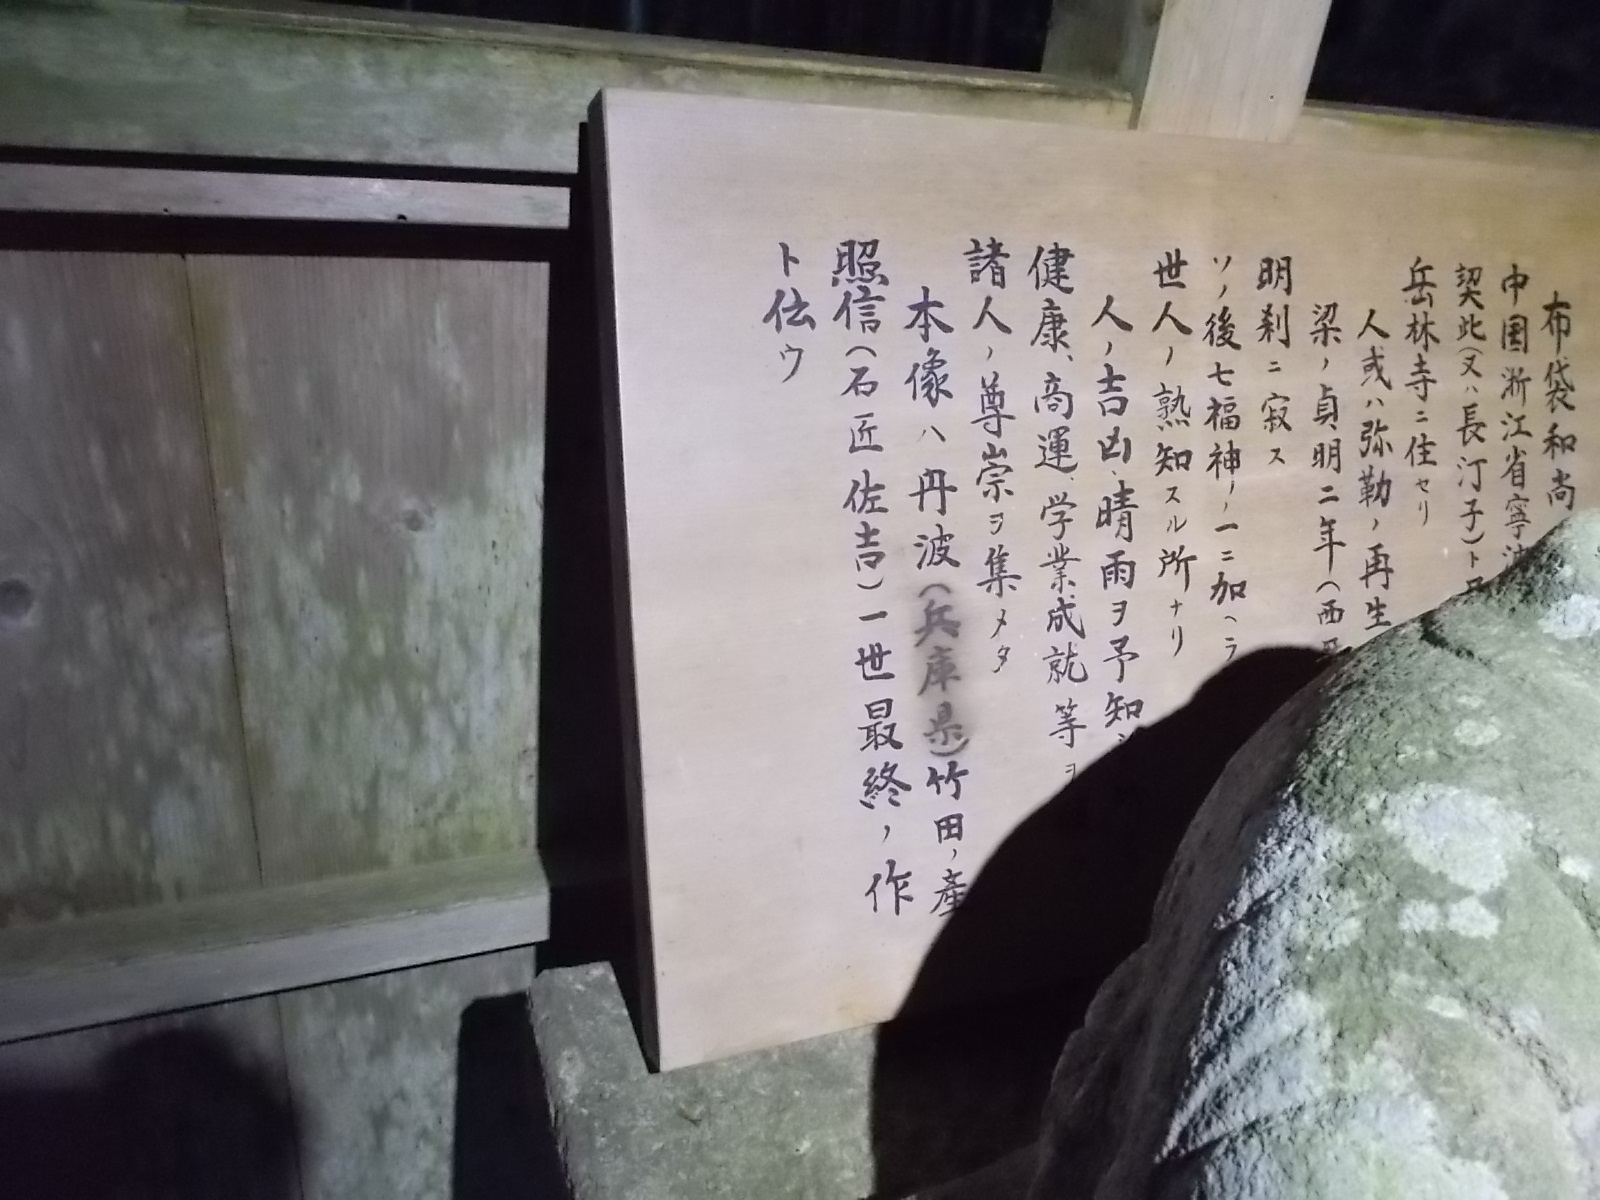 布袋和尚
中国浙江省寧波
契此(又ハ長汀子)ト
岳林寺ニ住セリ
人或ハ弥勒ノ再生
梁ノ貞明二年(西
明刹ニ寂ス
ソノ後七福神ノ一ニ加ヘラ
世人ノ熟知スル所ナリ
人ノ吉凶、晴雨ヲ予知シ
健康、商運、学業成就等ヲ
諸人ノ尊崇ヲ集メタ
本像ハ丹波(兵庫県)竹田ノ産
照信(石匠佐吉)一世最終ノ作
ト伝ウ